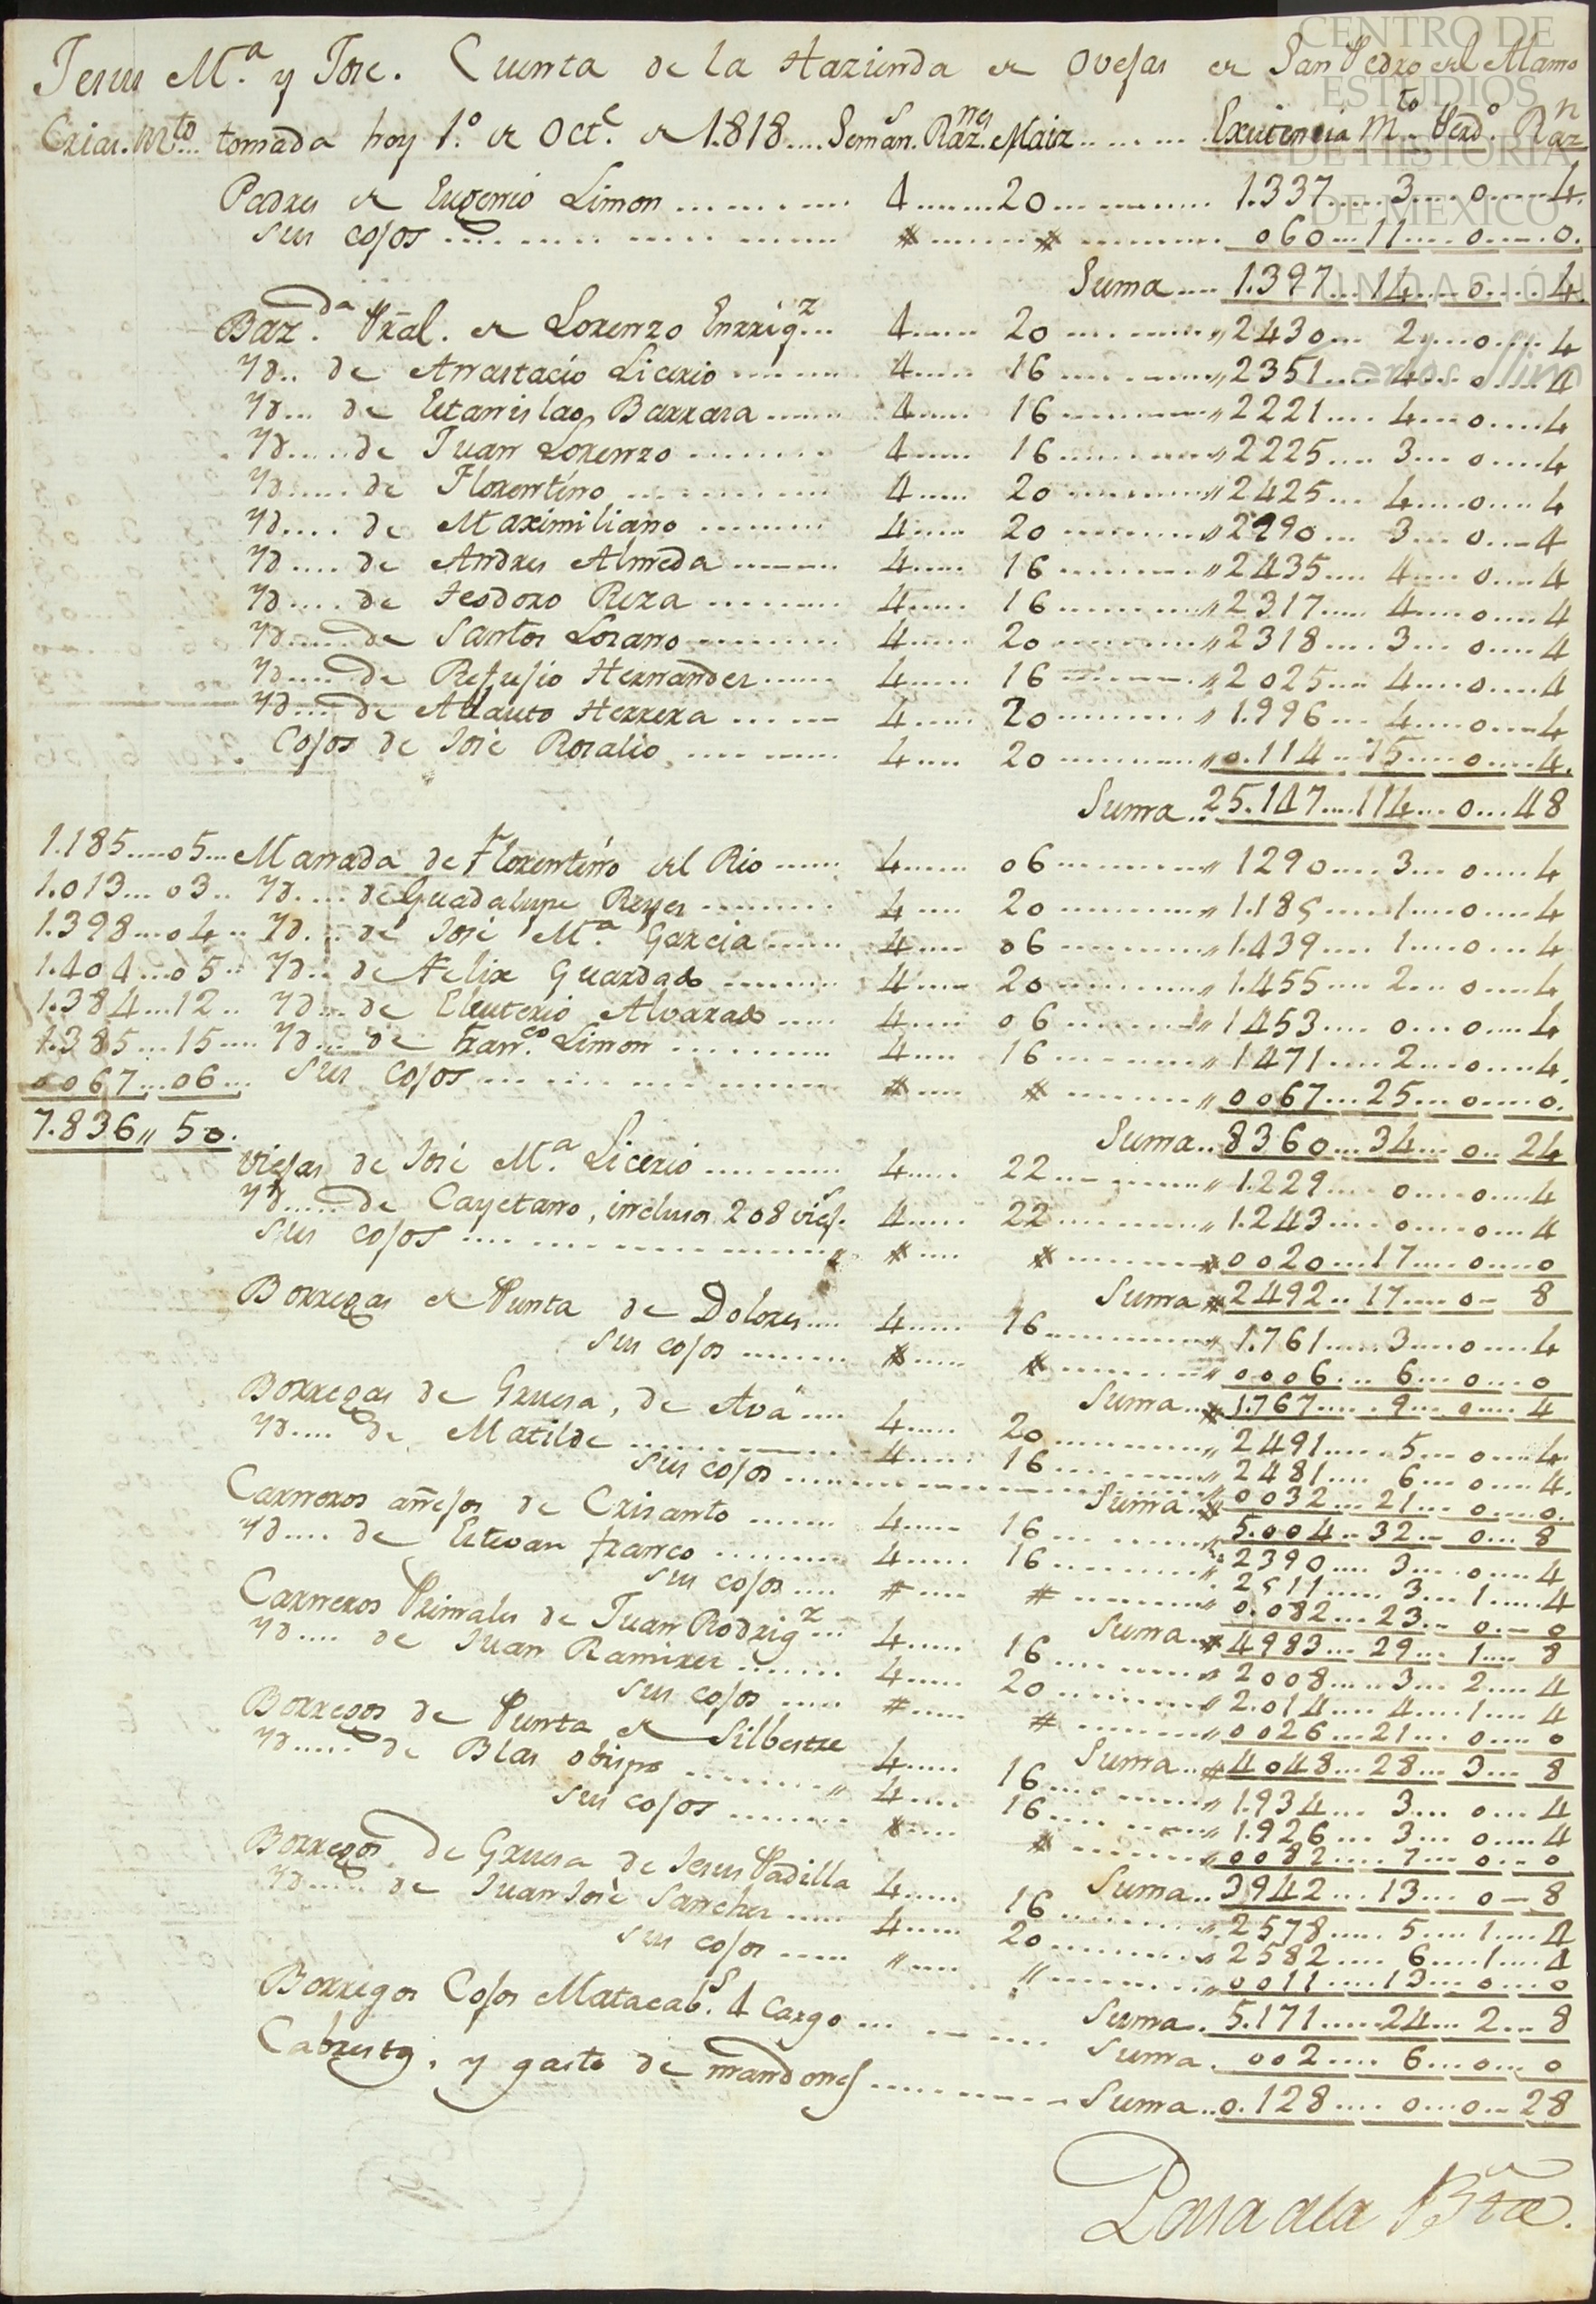 CENTRO DE
ESTUDIOS
DE HISTORIA
DE MEXICO
FUNDACIÓN
Carlos Slim
Jesus M.ª y Jose. Cuenta de la Hazienda de Ovejas de San Pedro del Alamo
Crias. M.to tomada hoy 1.º de Oct.e de 1.818.... Seman.s Raz.nes Maiz........ Existencia M.to Perd.º Raz.n
Padres de Eugenio Limon .......... 4.......20........... 1.337.....3....0.....4.
Sus cojos .................. #.......#........... 060....11....0.....0.
Suma.... 1.397....14....0....4.
Baz.da Pral. de Lorenzo Enrriq.z... 4..... 20 ......... 2430.... 2....0....4
Yd.. de Anastacio Licerio ........ 4..... 16 ......... 2351.... 4....0....4
Yd... de Estanislao Barrasa ...... 4..... 16 ......... 2221.... 4....0....4
Yd.....de Juan Lorenzo ........ 4..... 16 ......... 2225.... 3....0....4
Yd.....de Florentino .......... 4..... 20 ......... 2425.... 4....0....4
Yd.... de Maximiliano ......... 4..... 20 ......... 2290.... 3....0....4
Yd.... de Andres Almeda ....... 4..... 16 ......... 2435.... 4....0....4
Yd.... de Teodoro Reza ........ 4..... 16 ......... 2317.... 4....0....4
Yd.....de Santos Lozano ......... 4..... 20 ......... 2318.... 3....0....4
Yd.....de Refujio Hernandez ...... 4..... 16 ......... 2025.... 4....0....4
Yd....de Adauto Herrera ...... 4..... 20 ......... 1.996.... 4....0....4
Cojos de José Rosalio ........ 4.... 20 ......... 0.114...75....0....4.
Suma.. 25.147....114....0....48
1.185.....05... Manada de Florentino del Rio ...... 4..... 06 ......... 1290.... 3....0....4
1.013....03.. Yd.... de Guadalupe Reyes ......... 4.... 20 ......... 1.185.....1....0....4
1.398....04.. Yd.... de José M.ª Garcia ...... 4.... 06 ......... 1.439.... 1....0....4
1.404....05.. Yd... de Felix Guardado ........ 4.... 20 ......... 1.455.... 2....0....4
1.384....12.. Yd... de Eleuterio Alvarado ..... 4.... 06 ......... 1453.... 0....0....4
1.385....15.... Yd.... de Fran.co Limon ........ 4.... 16 ......... 1471.... 2....0....4.
0067....06... Sus cojos ................ #.... # ......... 0067...25....0....0.
7.836,, 50. Suma.. 8360....34....0...24
Viejas de José M.ª Licerio .......... 4..... 22 ......... 1.229.... 0....0....4
Yd.....de Cayetano, inclusos 208 viej.s 4..... 22 ......... 1.243.... 0....0....4
Sus cojos ................ #.... # ......... 0020....17....0....0
Suma # 2492...17....0... 8
Borregas de Punta de Dolores.... 4..... 16 ......... 1.761.....3....0....4
Sus cojos ........ #..... # ......... 0006.... 6....0....0
Suma.. # 1.767..... 9....0.... 4
Borregas de Gruesa, de Avá.... 4..... 20 ......... 2491..... 5....0....4.
Yd.... de Matilde ............ 4..... 16 ......... 2481..... 6....0....4.
Sus cojos ................ 0032....21....0....0.
Suma.. # 5.004...32....0....8
Carneros añejos de Crisanto ....... 4..... 16 ......... 2390.... 3....0....4
Yd.... de Estevan franco ......... 4..... 16 ......... 2511..... 3....1....4
Sus cojos .... #.... # ......... 0.082....23....0....0
Suma.. # 4983....29....1.... 8
Carneros Primales de Juan Rodrig.z... 4..... 16 ......... 2008.....3....2....4
Yd.... de Juan Ramirez ....... 4..... 20 ......... 2.014.... 4....1....4
Sus cojos ..... #..... # ......... 0026....21....0....0
Suma.. # 4048....28....3....8
Borregos de Punta de Silbestre 4..... 16 ......... 1.934.... 3....0....4
Yd..... de Blas obispo ......... 4.... 16 ......... 1.926.... 3....0....4
Sus cojos ........ #..... # ......... 0082.....7....0....0
Suma.. 3942....13....0....8
Borregos de Gruesa de Jesus Padilla 4..... 16 ......... 2578.....5....1....4
Yd..... de Juan José Sanches ..... 4..... 20 ......... 2582.....6....1....4
Sus cojos ..... ,,.... ,, ......... 0011.....13....0....0
Suma.. 5.171.....24....2....8
Borregos Cojos Matacab.s á Cargo ......... Suma. 002.... 6....0....0
Cabresto, y gasto de mandones .......... Suma.. 0.128.... 0....0...28
Pasa ala Bta.